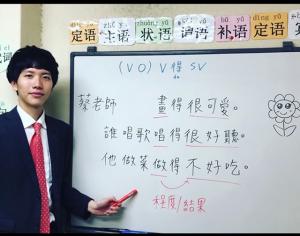 dìng yǔ zhǔ yǔ zhuàng yǔ wèi yǔ bǔ yǔ dìng yǔ
定语 主语 状语 谓语 补语 定语
(VO) V得 SV
de
蔡老師 畫得很可愛。
誰唱歌唱得很好聽。
他做菜做得不好吃。
程度/結果